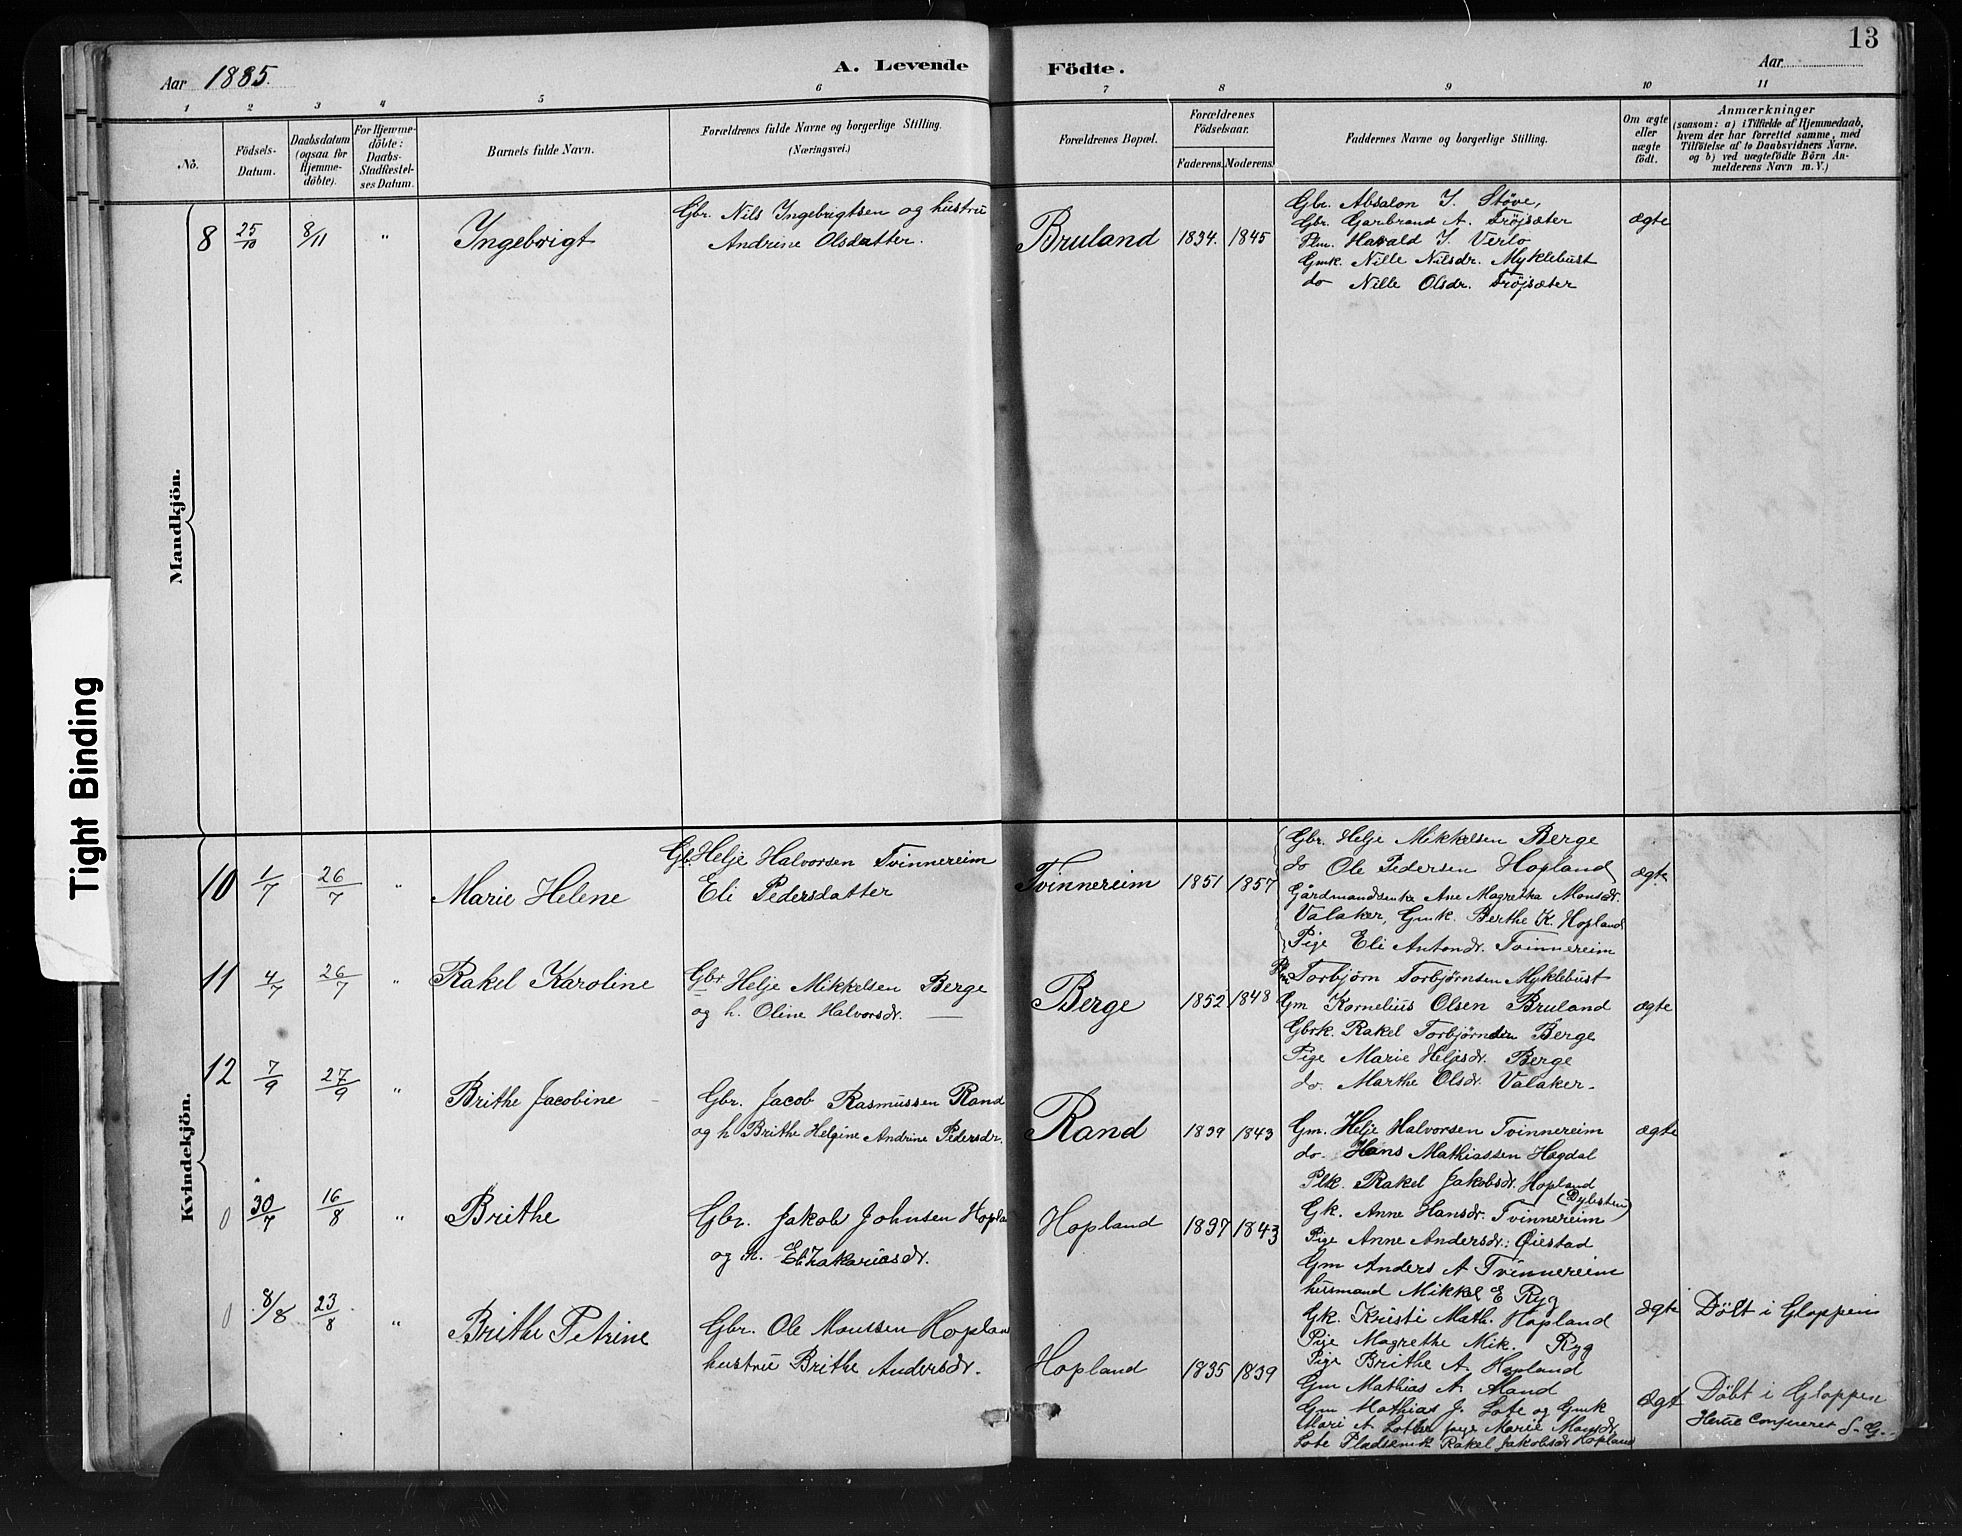 13
Aar 1885.
A. Levende Födte.
Aar
1 2 3 4 5 6 7 8 9 10 11
No.
Födsels-Datum.
Daabsdatum (ogsaa for Hjemme-döbte).
For Hjemme-döbte: Daabs-Stadfæstel-ses Datum.
Barnets fulde Navn.
Forældrenes fulde Navne og borgerlige Stilling. (Næringsvei.)
Forældrenes Bopæl.
Forældrenes Födselsaar.
Faderens. Moderens.
Faddernes Navne og borgerlige Stilling.
Om ægte eller uægte födt.
Anmærkninger
(saasom: a) i Tilfælde af Hjemmedaab,
hvem der har forrettet samme, med
Tilföielse af to Daabsvidners Navne.
og b) ved uægtefödte Börn An-
melderens Navn m. V.)
Mandkjön.
8 25/10 8/11 " Ingebrigt
Gbr. Nils Ingebrigtsen og hustru
Andrine Olsdatter.
Bruland 1834. 1845
Gbr. Absalon I. Støve,
Gbr. Garbrand A. Trøjsæter
Plm. Harald I. Verlo
Gmk. Nille Nilsdr. Myklebust
do Nille Olsdr. Trøjsæter
ægte
Tight Binding
Kvindekjön.
10 1/7 26/7 " Marie Helene
Gb. Helje Halvorsen Tvinnereim
Eli Pedersdatter
Tvinnereim 1851 1857
Gbr. Helje Mikkelsen Berge
do Ole Pedersen Hopland
Gårdmandsenke Ane Magretha Monsdr.
Valaker, Gmk. Berthe K. Hopland
Pige Eli Antondr. Tvinnereim
ægte
11 4/7 26/7 " Rakel Karoline
Gbr Helje Mikkelsen Berge
og h. Oline Halvorsdr. —
Berge 1852 1848
Torbjørn Torbjørnsen Myklebust
Gm Kornelius Olsen Bruland
Gbrk. Rakel Torbjørnsen Berge
Pige Marie Heljesdr. Berge
do. Marthe Olsdr. Valaker.
ægte
12 7/9 27/9 " Brithe Jacobine
Gbr. Jacob Rasmussen Rand
og h Brithe Helgine Andrine Pedersdr.
Rand 1839 1843
Gm. Helje Halvorsen Tvinnereim
do. Hans Mathiassen Hægdal
Plk. Rakel Jakobsdr. Hopland
Gk. Anne Hansdr. Tvinnereim
Pige Anne Andersdr. Øiestad
ægte
0 30/7 16/8 " Brithe
Gbr. Jakob Johnsen Hopla
og h. Eli Zakariasdr.
Hopland 1837 1843
Gm Anders A Tvinnereim
husmand Mikkel E Ryg
Gk. Kristi Math. Hopland
Pije Magrethe Mik. Ryg
Pige Brithe A. Hopland
ægte Døbt i Gloppen
0 8/8 23/8 " Brithe Petrine
Gbr. Ole Monssen Hoplan
hustru Brithe Andersdr.
Hopland 1835 1839
Gm Mathias A. Mand
Gm Mathias J. Lote og Gmk
Mari A Lothe pige Marie Monsdr.
Lote Pladsemk Rakel Jakobsdr Hopland
ægt Døbt i Gloppen
S. G.